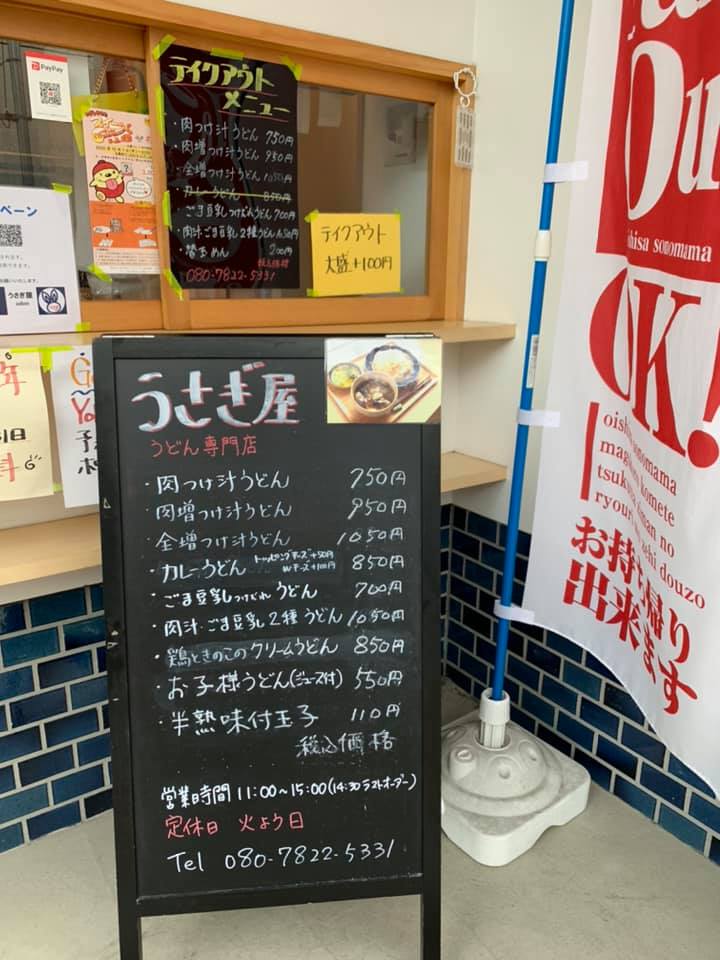 PayPay
テイクアウト
メニュー
・肉つけ汁うどん 750円
・肉増つけ汁うどん 950円
・全増つけ汁うどん 1050円
・カレーうどん 850円
・ごま豆乳つけだれうどん 700円
・肉汁・ごま豆乳2種うどん 1050円
・替玉めん 200円
税込価格
080-7822-5331
テイクアウト
大盛+100円
ペーン
うさぎ屋
うさぎ屋
うどん専門店
・肉つけ汁うどん 750円
・肉増つけ汁うどん 950円
・全増つけ汁うどん 1050円
・カレーうどん トッピングチーズ+50円 Wチーズ+100円 850円
・ごま豆乳つけだれうどん 700円
・肉汁・ごま豆乳2種うどん 1050円
・鶏ときのこのクリームうどん 850円
・お子様うどん(ジュース付) 550円
・半熟味付玉子 110円
税込価格
営業時間 11:00~15:00(14:30ラストオーダー)
定休日 火よう日
Tel 080-7822-5331
Ou
sonomama
OK!
sonomama
komete
no
douzo
お持ち帰り
出来ます